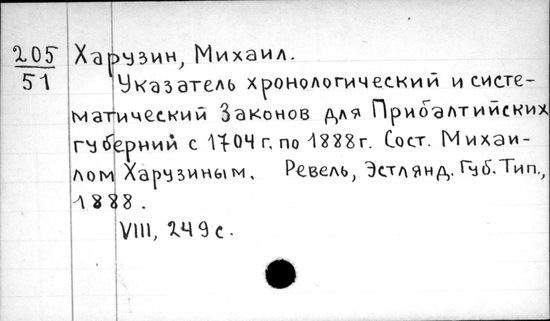 205
51
Харузин, Михаил.
Указатель хронологический и систе-
матический Законов для Прибалтийских
губерний с 1704 г. по 1888 г. Сост. Михаи-
лом Харузиным. Ревель, Эстлянд. Губ. Тип.,
1888.
VIII, 249 с.